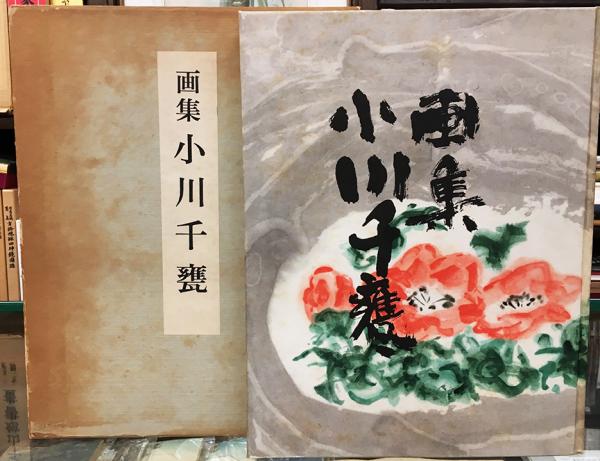 画集 小川千甕
画集
小川千甕